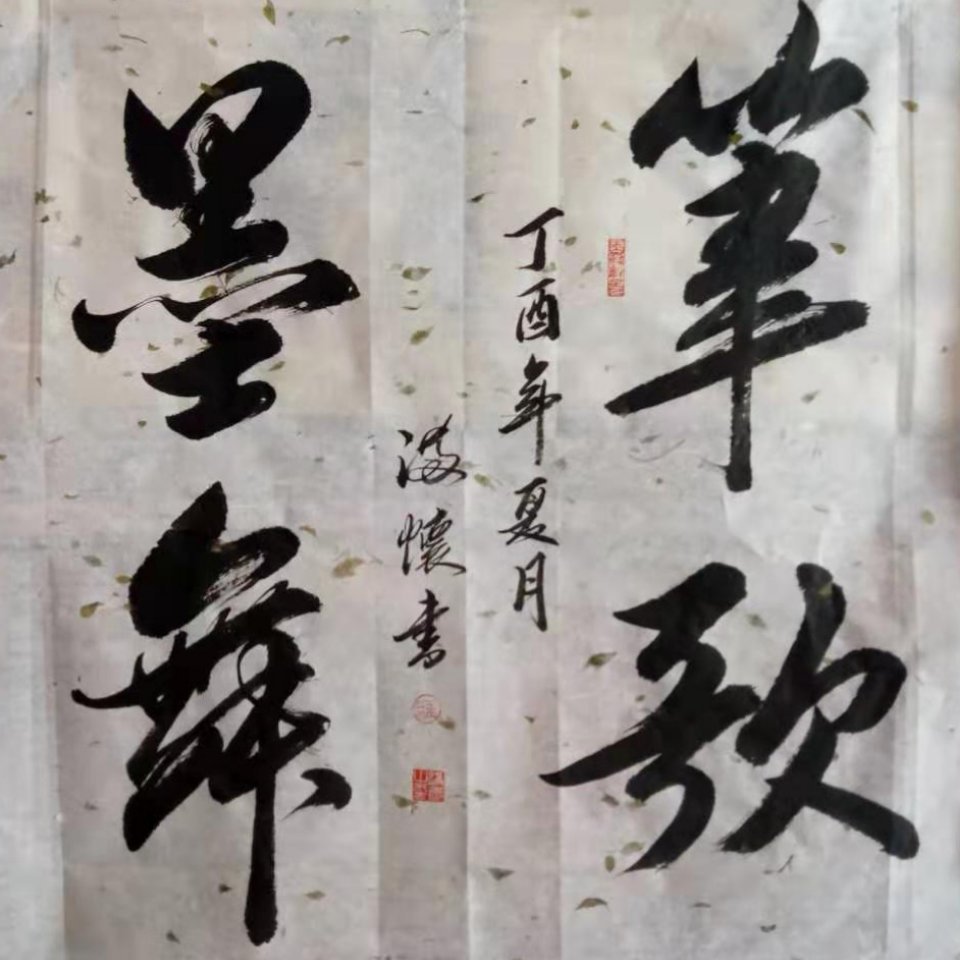 筆歌
墨舞
丁酉年夏月
懷書